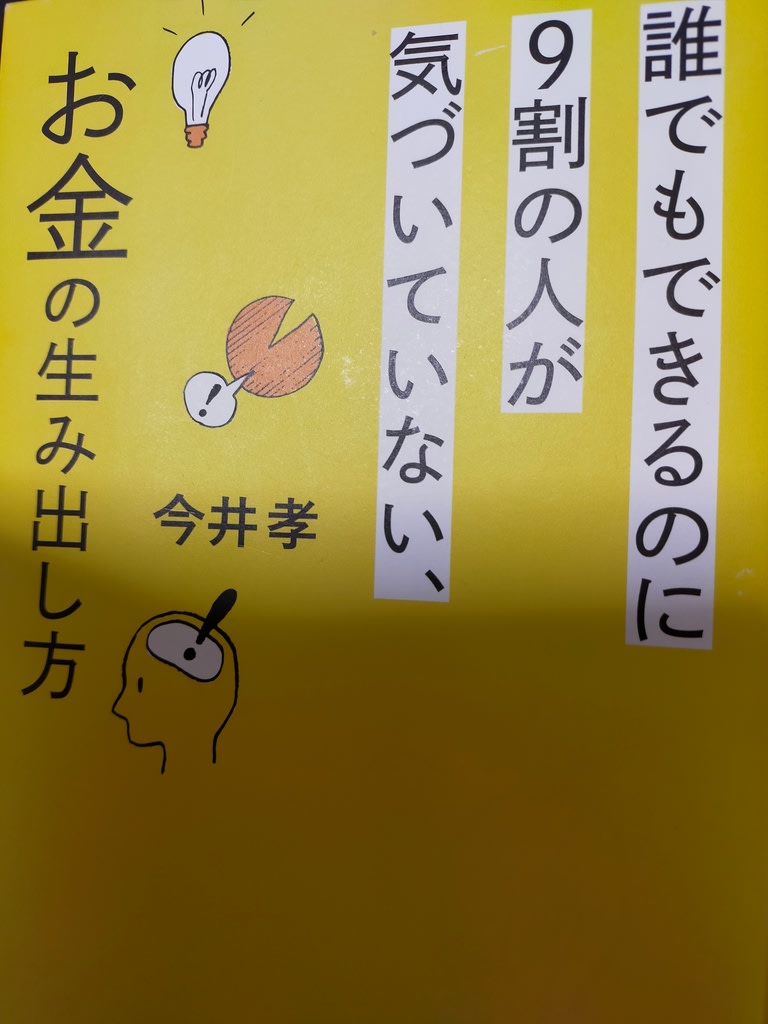 誰でもできるのに
9割の人が
気づいていない、
お金の生み出し方
今井孝